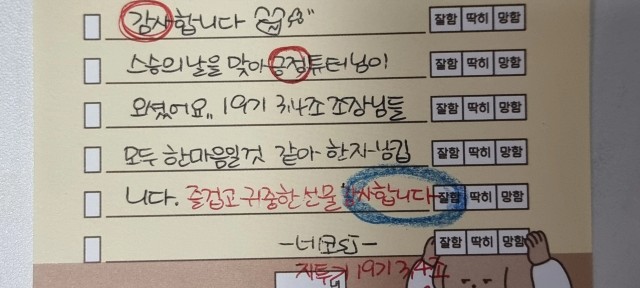 감사합니다 잘함 딱히 망함
스승의날을 맞아 긍정튜터님이 잘함 딱히 망함
오셨어요,, 19기 3,4조 조장님들 잘함 딱히 망함
모두 한마음일것 같아 한자 남깁 잘함 딱히 망함
니다. 즐겁고 귀중한 선물 감사합니다 잘함 딱히 망함
잘함 딱히 망함
지투기 19기 3,4조